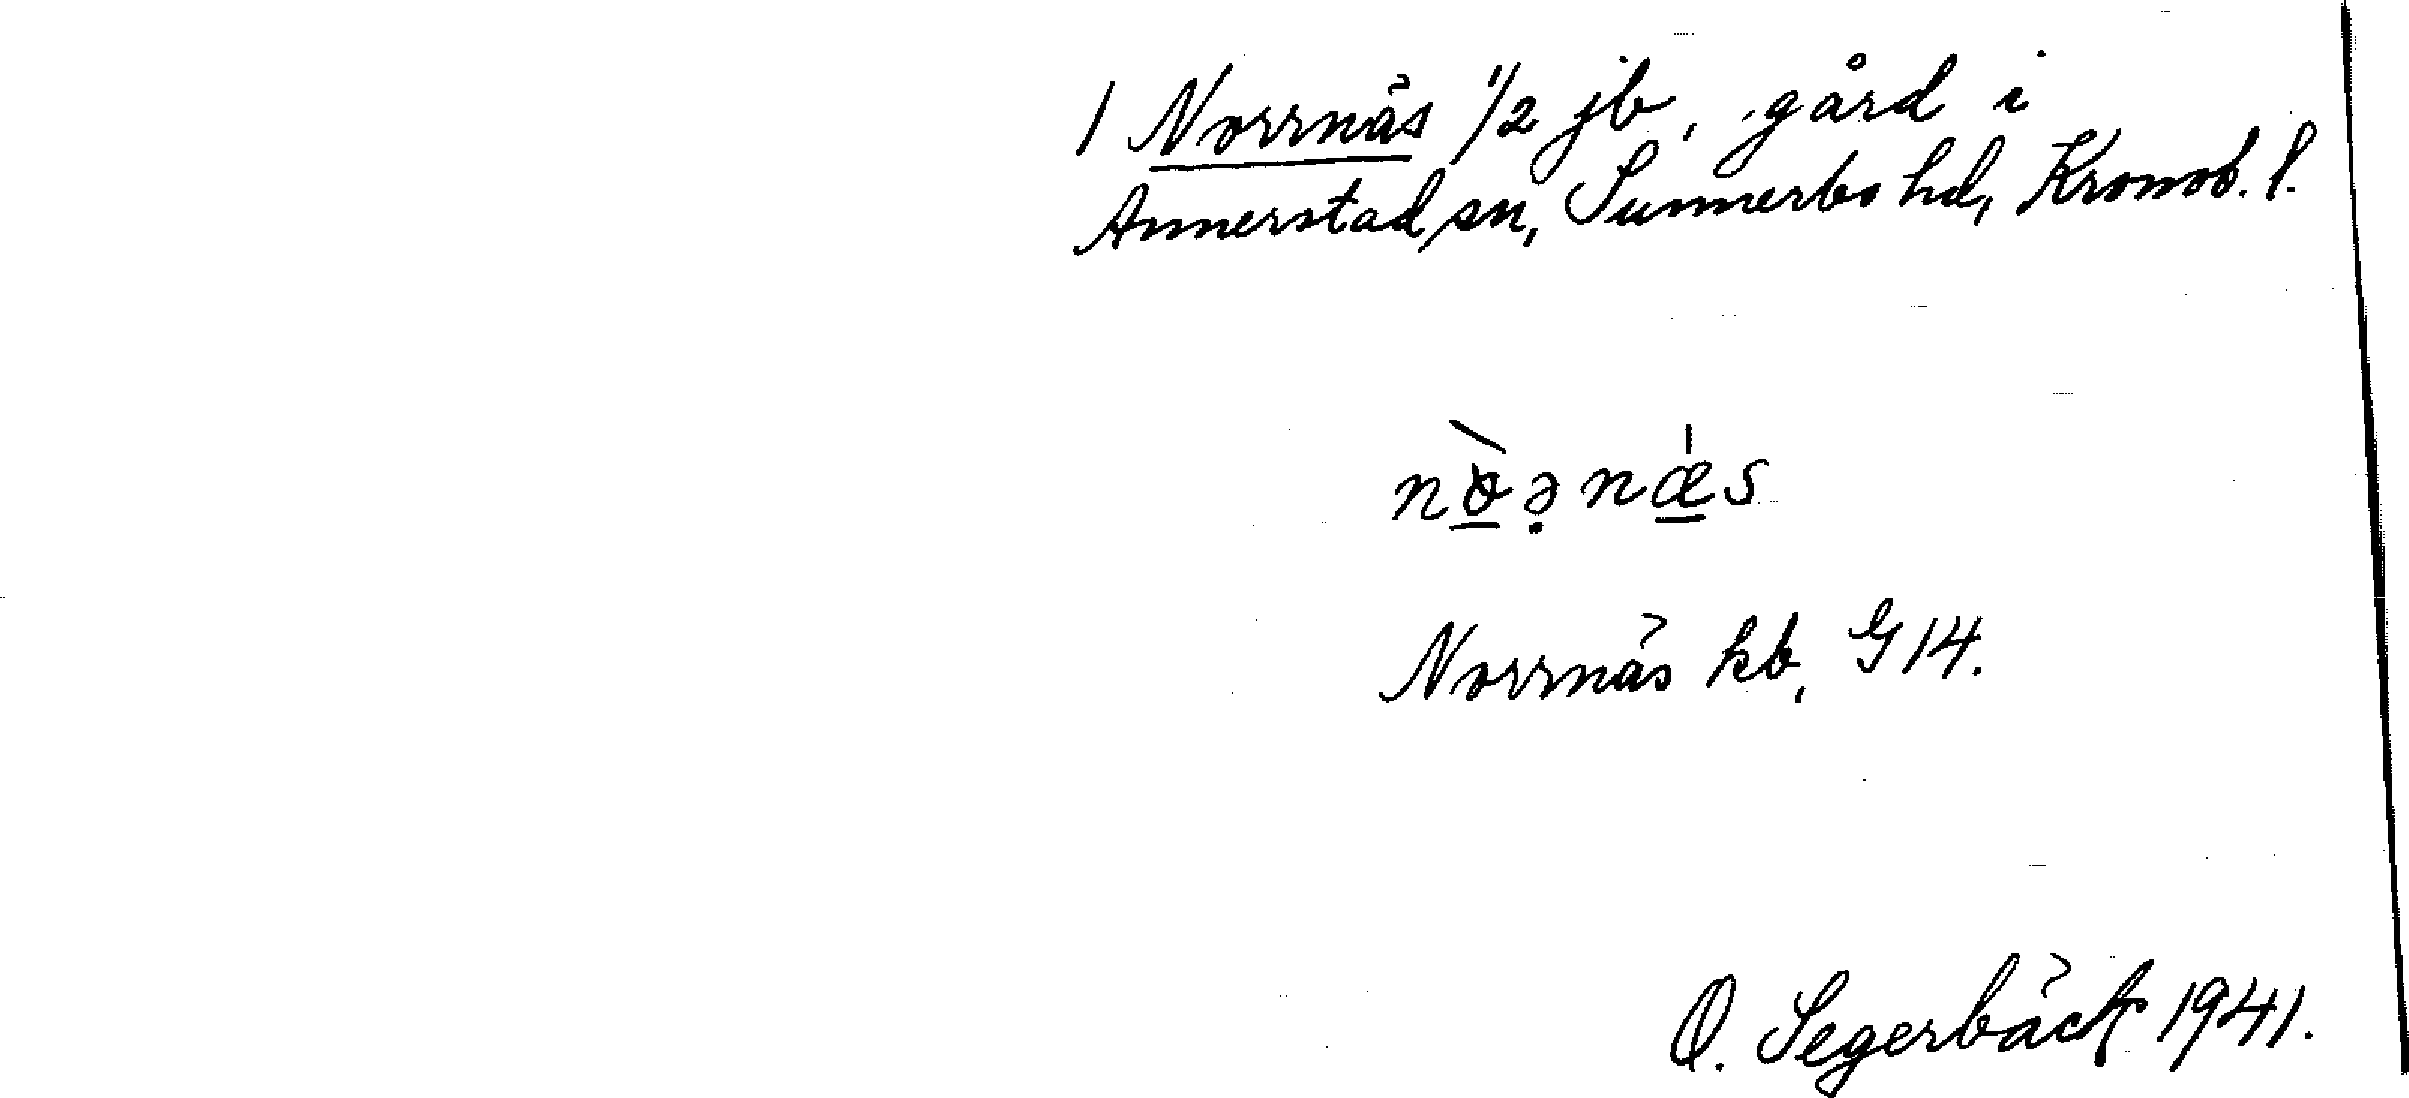 1 Norrnäs 1/2 jb, gård i
Annerstad sn, Sunnerbo hd, Kronob. l.
nò̱ə̣nǽ̱s
Norrnäs kb, G14.
O. Segerbäck 1941.